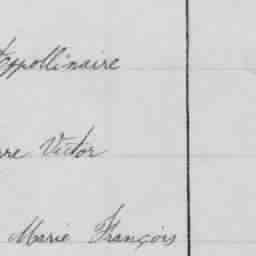 Appollinaire
rre Victor
Marie François